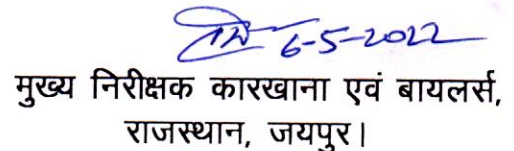 6-5-2022
मुख्य निरीक्षक कारखाना एवं बायलर्स,
राजस्थान, जयपुर।